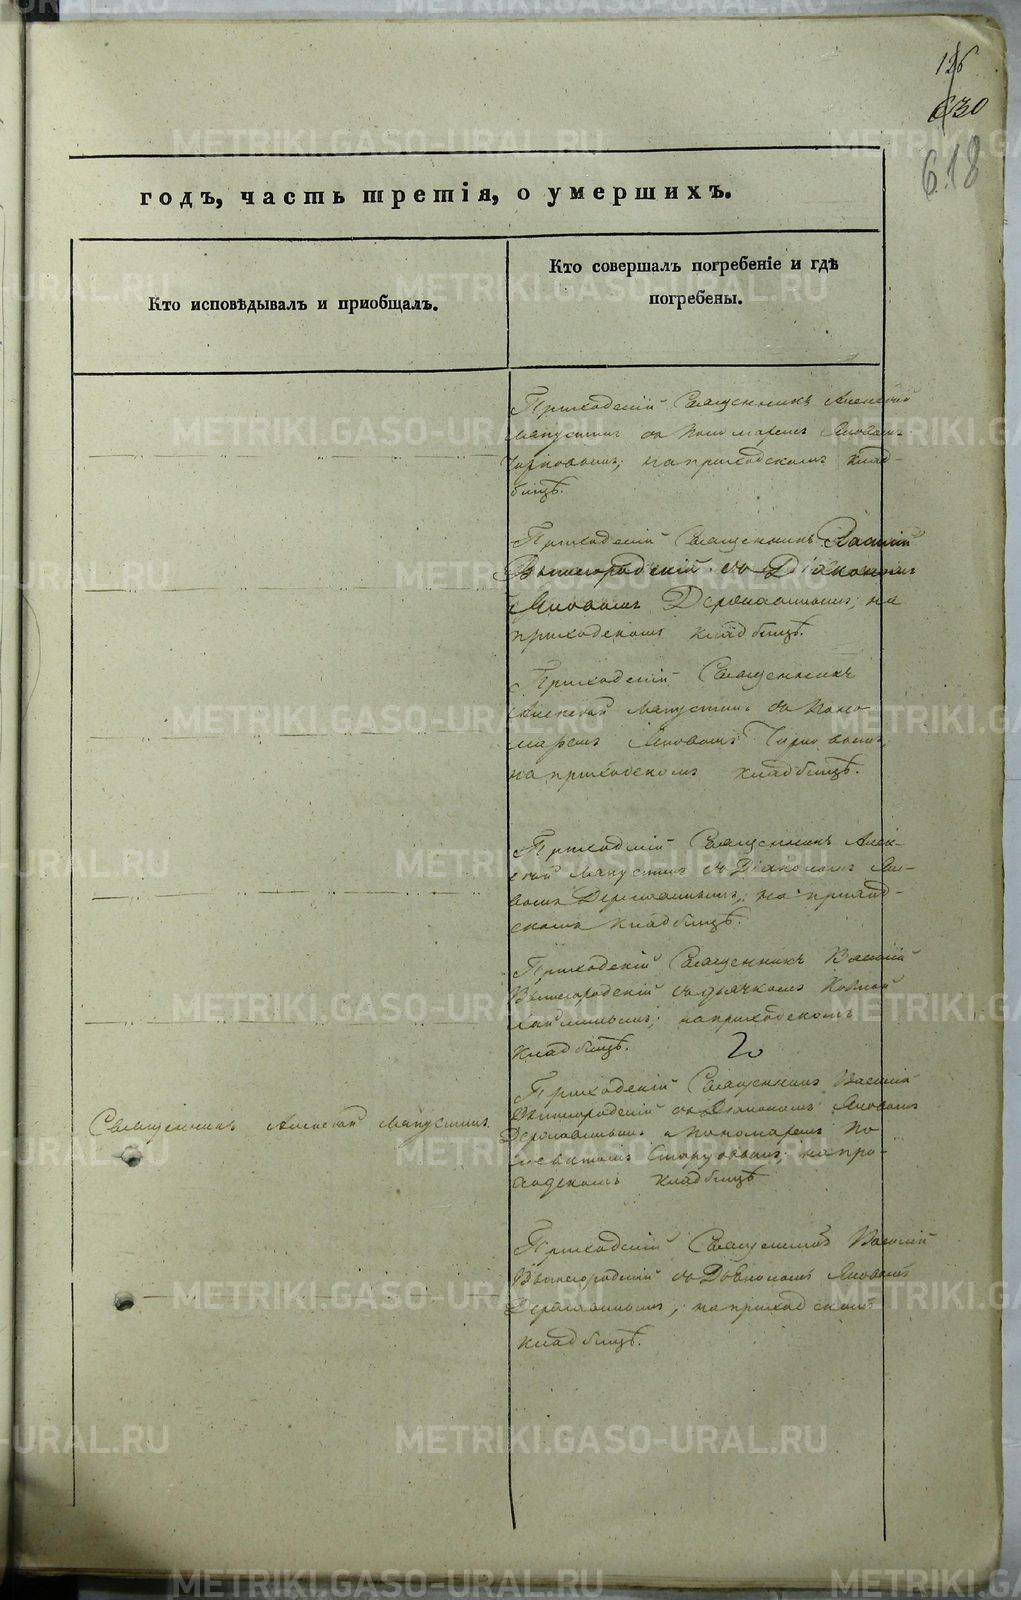 126
630
618
годъ, часть третія, о умершихъ.
Кто исповѣдывалъ и приобщалъ.
Кто совершалъ погребеніе и гдѣ
погребены.
Приходскій Священникъ Алексѣй
Мапустинъ съ Пономаремъ Яковомъ
на приходскомъ клад-
бищѣ.
Приходскій Священникъ Василій
Вышегородскій съ Діакономъ
Яковомъ Державинымъ, на
приходскомъ кладбищѣ.
Приходскій Священникъ
Алексѣй Мапустинъ съ Поно-
маремъ Яковомъ
на приходскомъ кладбищѣ.
Приходскій Священникъ Алек-
сѣй Мапустинъ съ Діакономъ Яко-
вомъ Державинымъ, на приход-
скомъ кладбищѣ.
Приходскій Священникъ Василій
Вышегородскій съ дьячкомъ
на приходскомъ
кладбищѣ.
Священникъ Алексѣй Мапустинъ.
Приходскій Священникъ Василій
Вышегородскій съ Діакономъ Яковомъ
Державинымъ и пономаремъ
на при-
ходскомъ кладбищѣ
Приходскій Священникъ Василій
Вышегородскій съ Діакономъ Яковомъ
Державинымъ, на приходскомъ
кладбищѣ.
METRIKI.GASO-URAL.RU